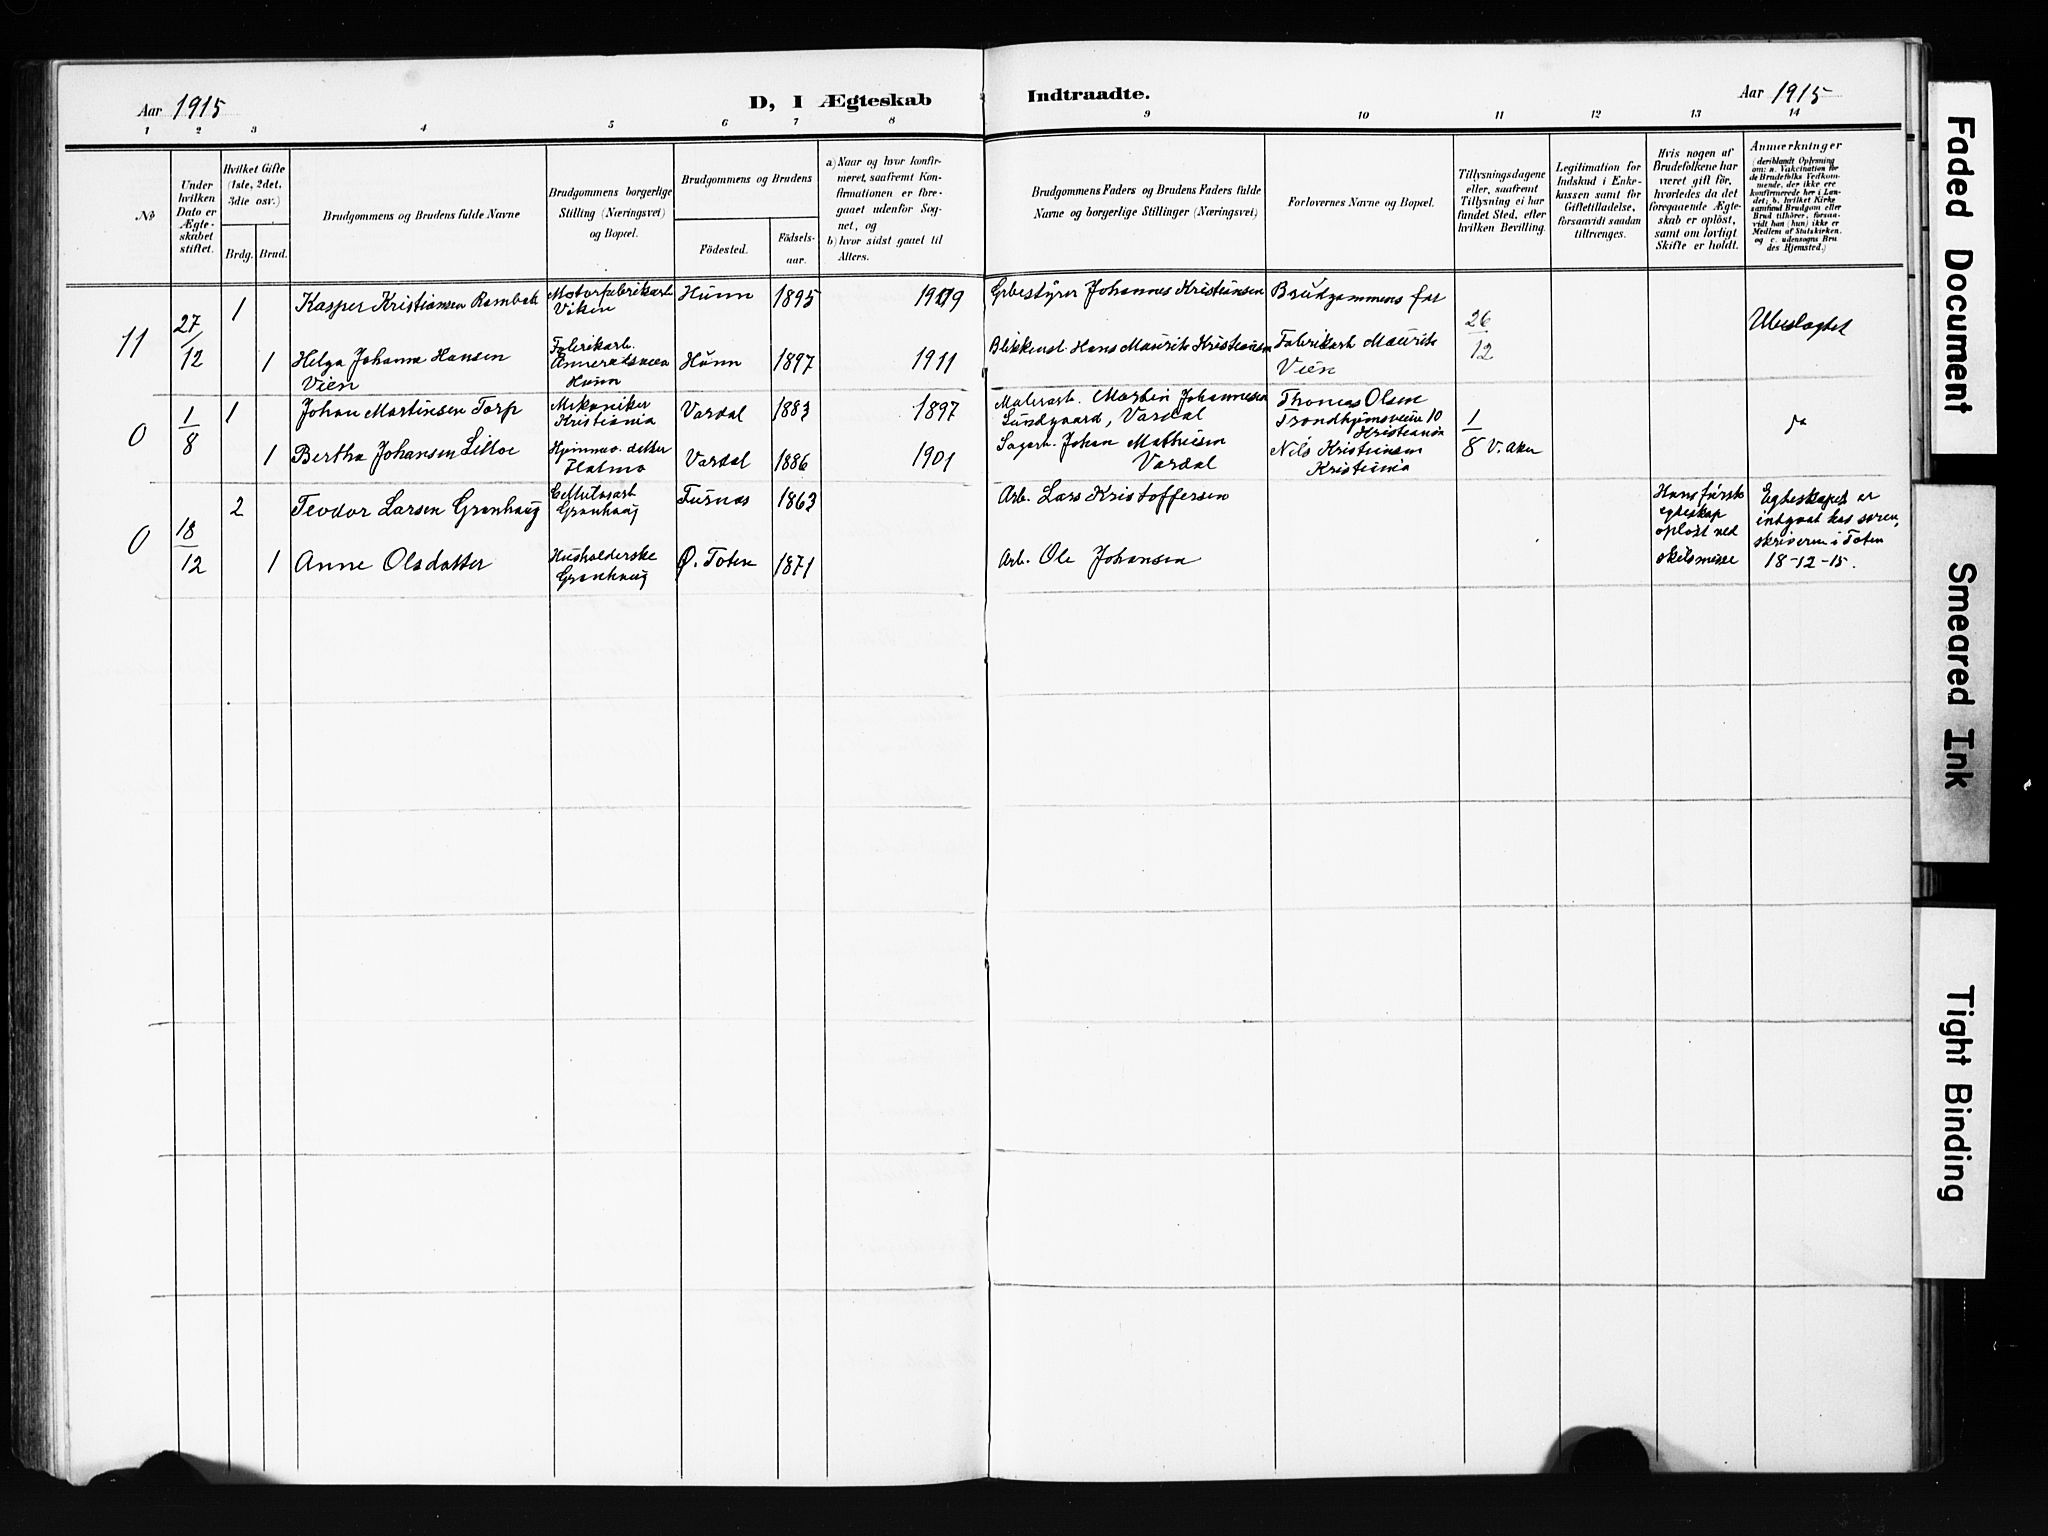 Aar 1915
D, I Ægteskab Indtraadte.
Aar 1915
1 2 3 4 5 6 7 8 9 10 11 12 13 14
No
Under hvilken Dato er Ægteskabet stiftet.
Hvilket Gifte (1ste, 2det, 3die osv.)
Brdg. Brud.
Brudgommens og Brudens fulde Navne
Brudgommens borgerlige Stilling (Næringsvei) og Bopæl.
Brudgommens og Brudens
Födested.
Födselsaar.
a) Naar og hvor konfirmeret, saafremt Konfirmationen er foregaaet udenfor Sognet, og
b) hvor sidst gaaet til Alters.
Brudgommens Faders og Brudens Faders fulde Navne og borgerlige Stillinger (Næringsvei)
Forlovernes Navne og Bopæl.
Tillysningsdagene eller, saafremt Tillysning ei har fundet Sted, efter hvilken Bevilling.
Legitimation for Indskud i Enkekassen samt for Giftetilladelse, forsaavidt saadan tiltrænges.
Hvis nogen af Brudefolkene har været gift för, hvorledes da det foregaaende Ægteskab er oplöst, samt om lovligt Skifte er holdt.
Anmærkninger
(deriblandt Oplysning om: a. Vakcination for de Brudefolks Vedkommende, der ikke ere konfirmerede her i Landet; b. hvilket Kirkesamfund Brudgom eller Brud tilhörer, forsaavidt han (hun) ikke er Medlem af Statskirken, og c. udensogns Brudes Hjemsted.)
11 27/12 1 Kasper Kristiansen Rambek Motorfabrikarb. Viken Hunn 1895 1909 Johannes Kristiansen Brudgommens far 26/12 Ubeslægtet
1 Helga Johanne Hansen Vien Fabrikarb. Hunn Hunn 1897 1911 Blikkensl. Hans Maurits Kristiansen Fabrikarb Maurits Vien
0 1/8 1 Johan Martinsen Torp Mekaniker Kristiania Vardal 1883 1897 Malerarb. Martin Johannesen Lundgaard, Vardal Thomas Olsen Trondhjemsveien 10 Kristiania 1/8 V. Aker
1 Bertha Johansen Lilloe Hjemmev. datter Vardal 1886 1901 Sagarb. Johan Mathiesen Vardal Nils Kristiansen Kristiania
0 18/12 2 Teodor Larsen Grønhaug Cellulosarb Grønhaug Furnes 1863 Arb. Lars Kristoffersen Hans første egteskap opløst ved skilsmisse Egteskapet er indgaat hos sorenskriveren i Toten 18-12-15.
1 Anne Olsdatter Husholderske Grønhaug Ø. Toten 1871 Arb. Ole Johansen
Faded Document
Smeared Ink
Tight Binding